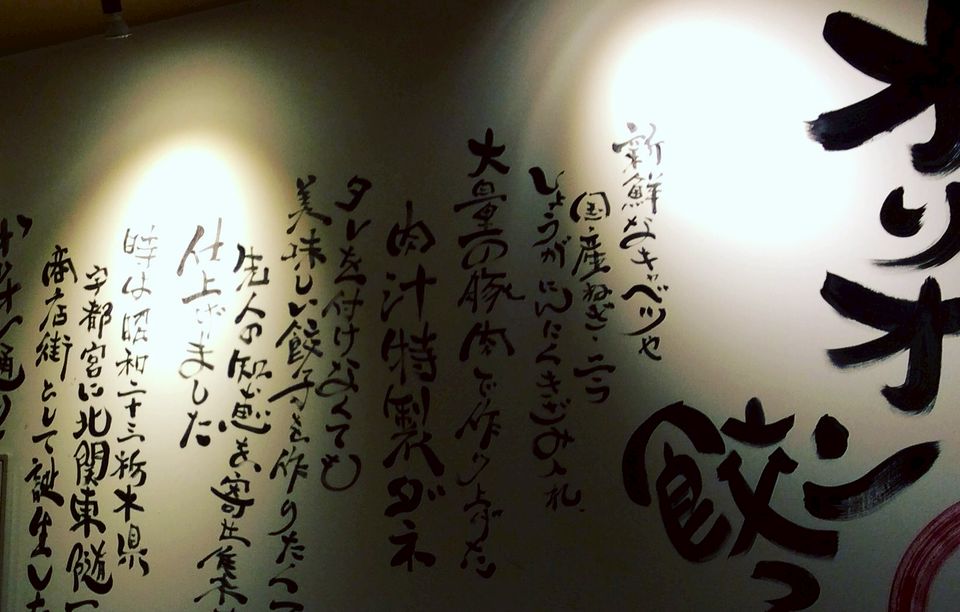 オリオン餃
新鮮なキャベツや
国産ねぎ・ニラ
しょうがにんにくきざみ入れ
大量の豚肉で作り上げた
肉汁特製ダネ
タレを付けなくても
美味しい餃子を作りたくて
先人の知恵を寄せ集め
仕上げました
時は昭和二十三栃木県
宇都宮に北関東随一
商店街として誕生した
オリオン通り